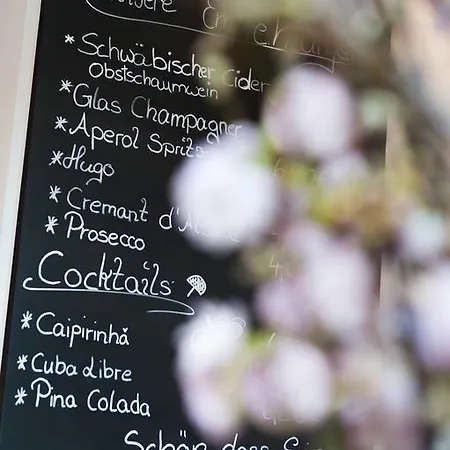 Unsere Empfehlungen
* Schwäbischer Cider
Obstschaumwein
* Glas Champagner
* Aperol Spritz
* Hugo
* Cremant d'Alsace
* Prosecco
Cocktails
* Caipirinha
* Cuba Libre
* Pina Colada
Schön, dass Sie